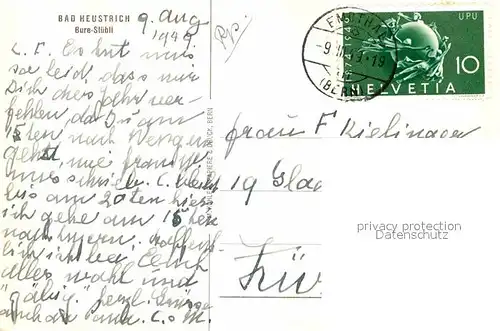 BAD HEUSTRICH
Bure-Stübli
9. Aug
1949
L. F. Es tut mir
so leid, dass wir
Dich dies Jahr ver-
fehlen, da Du am
15ten nach Wengen
gehst, wie
uns C. bleibt
bis am 20ten hier
ich gehe am 15ten
nach Luzern. Hoffent-
lich ist bei Euch
alles wohl und
"gäbig". Herzl. Grüsse
auch an C. M.
ENDTHAL
-9.VIII.49.-19
(BERN)
UPU
10
HELVETIA
Frau F Kielinger
19 Glad
Zür
privacy protection
Datenschutz